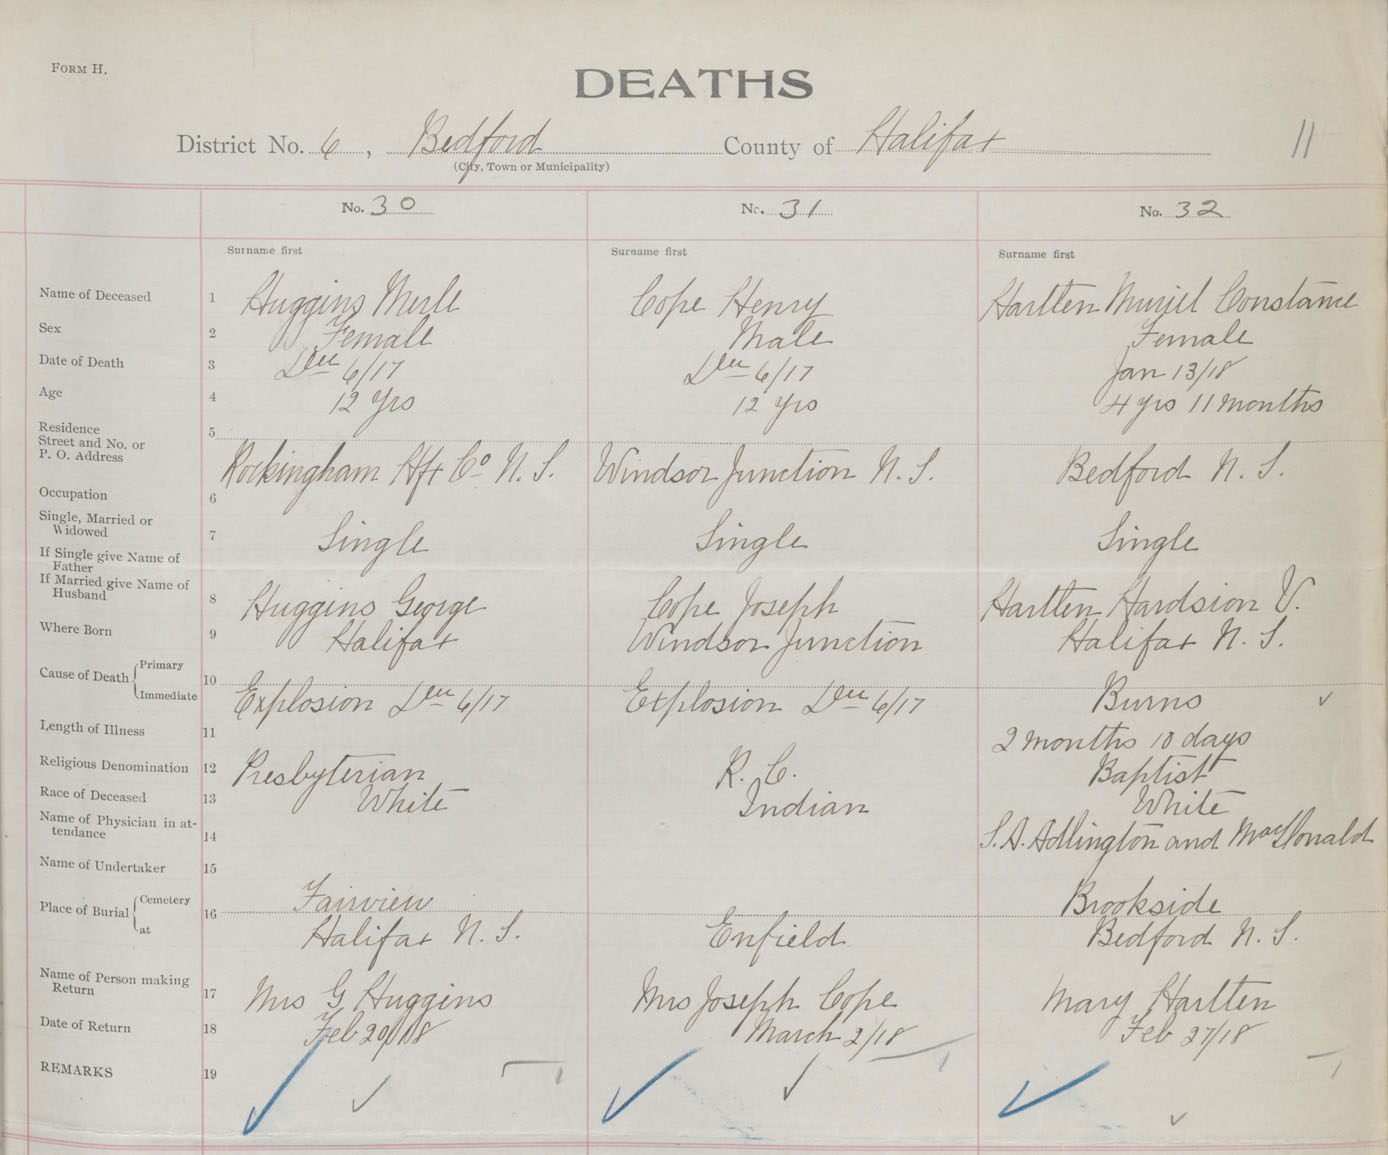 FORM H.
DEATHS
District No. 6, Bedford County of Halifax 11
(City, Town or Municipality)
No. 30 No. 31 No. 32
Surname first Surname first Surname first
Name of Deceased 1 Huggins Merle Cope Henry Hartlen Muriel Constance
Sex 2 Female Male Female
Date of Death 3 Dec 6/17 Dec 6/17 Jan 13/18
Age 4 12 Yrs 12 yrs 4 yrs 11 months
Residence 5
Street and No. or
P. O. Address Rockingham Hfx Co N. S. Windsor Junction N. S. Bedford N. S.
Occupation 6
Single, Married or
Widowed 7 Single Single Single
If Single give Name of
Father
If Married give Name of
Husband 8 Huggins George Cope Joseph Hartlen Hardsion V.
Where Born 9 Halifax Windsor Junction Halifax N. S.
Cause of Death Primary
10
Immediate Explosion Dec 6/17 Explosion Dec 6/17 Burns
Length of Illness 11 2 months 10 days
Religious Denomination 12 Presbyterian R. C. Baptist
Race of Deceased 13 White Indian White
Name of Physician in at-
tendance 14 S. A. Adlington and MacDonald
Name of Undertaker 15
Place of Burial Cemetery 16 Fairview Brookside
at Halifax N. S. Enfield Bedford N. S.
Name of Person making
Return 17 Mrs G Huggins Mrs Joseph Cope Mary Hartlen
Date of Return 18 Feb 20/18 March 2/18 Feb 27/18
REMARKS 19